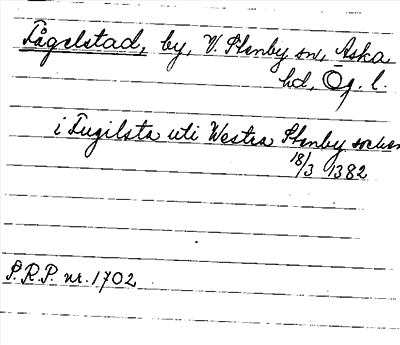 Fågelstad, by, V. Stenby sn, Aska
hd, Ög. l.
i Fugilsta uti Westra Stenby socken
18/3 1382
S.R.P. nr. 1702